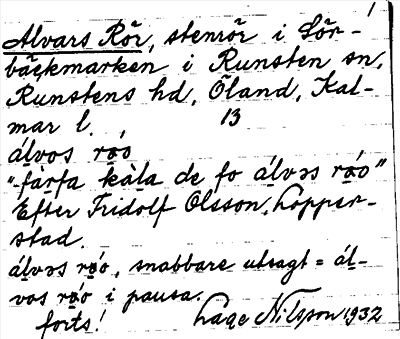 1
Alvars Rör, stenrör i Lör-
bäckmarken i Runsten sn,
Runstens hd, Öland, Kal-
mar l. 13
álvos ró
"fàrfa kàla de fo álvəs róo"
Efter Fridolf Olsson, Lopper-
stad.
álvəs róo, snabbare utsagt = ál-
vos róo i pausa.
forts! Lage Nilsson 1932